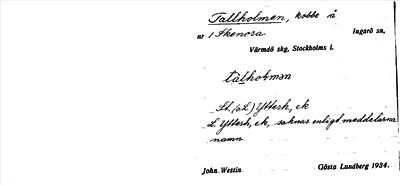 Tallholmen, kobbe å
nr 1 Skenora Ingarö sn,
Värmdö skg, Stockholms l.
tàlholmən
St. (o.L.) Ytterh, ek
L. Ytterh, ek, saknar enligt meddelarna
namn.
John Westin Gösta Lundberg 1934.